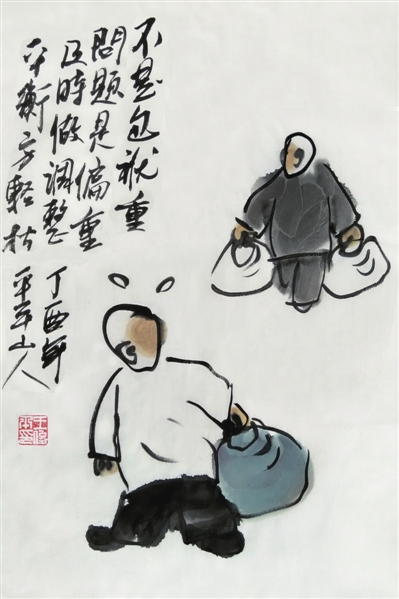 不是包袱重
問題是偏重
及時做調整
平衡方輕松
丁酉年
平平山人